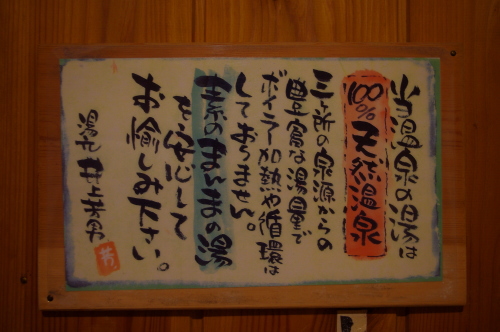 当温泉の湯は
100%天然温泉
三ヶ所の泉源からの
豊富な湯量で
ボイラー加熱や循環は
しておりません。
本物のまゝの湯
を安心して
お愉しみ下さい。
湯元 井上